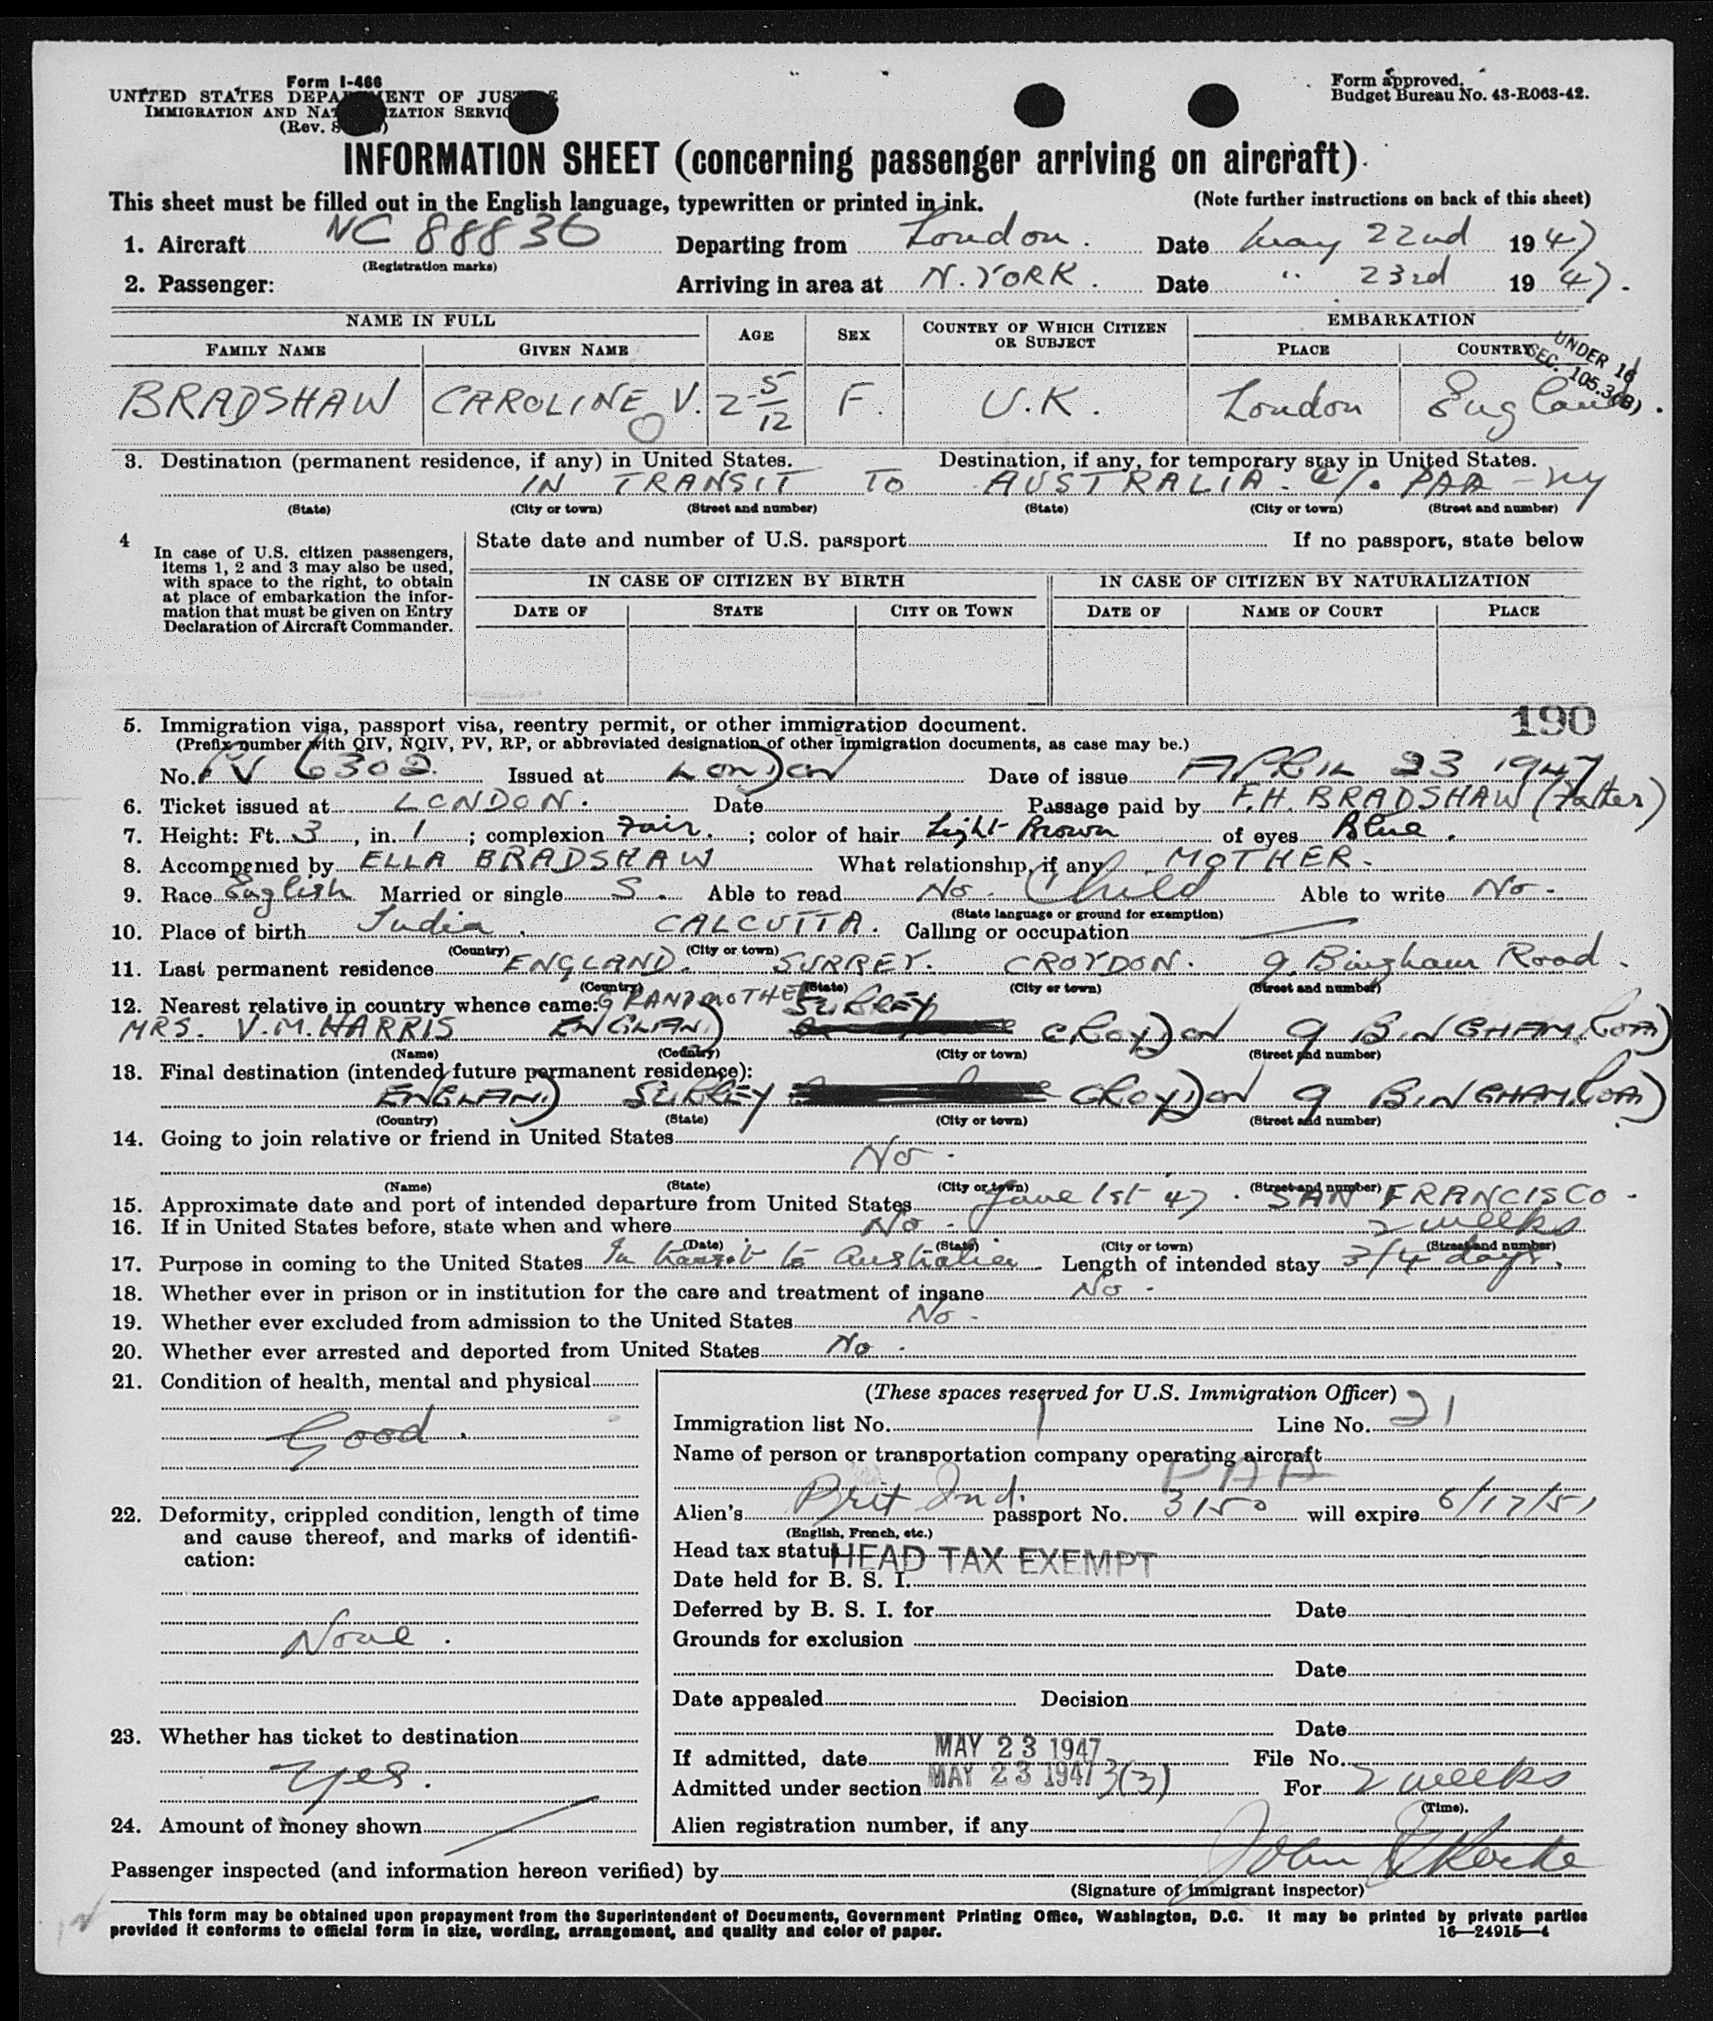 Form I-466
UNITED STATES DEPARTMENT OF JUSTICE
IMMIGRATION AND NATURALIZATION SERVICE
(Rev.
Form approved.
Budget Bureau No. 43-R063-42.
INFORMATION SHEET (concerning passenger arriving on aircraft)
This sheet must be filled out in the English language, typewritten or printed in ink. (Note further instructions on back of this sheet)
1. Aircraft NC 88836 Departing from London. Date May 22nd 1947
(Registration marks)
2. Passenger: Arriving in area at N. YORK. Date " 23rd 1947.
NAME IN FULL AGE SEX COUNTRY OF WHICH CITIZEN OR SUBJECT EMBARKATION
FAMILY NAME GIVEN NAME PLACE COUNTRY
UNDER 16
SEC. 105.3(B)
BRADSHAW CAROLINE V. 2 5/12 F. U.K. London England.
3. Destination (permanent residence, if any) in United States. Destination, if any, for temporary stay in United States.
IN TRANSIT TO AUSTRALIA. C/o PAA - NY
(State) (City or town) (Street and number) (State) (City or town) (Street and number)
4 In case of U.S. citizen passengers, items 1, 2 and 3 may also be used, with space to the right, to obtain at place of embarkation the information that must be given on Entry Declaration of Aircraft Commander.
State date and number of U.S. passport If no passport, state below
IN CASE OF CITIZEN BY BIRTH IN CASE OF CITIZEN BY NATURALIZATION
DATE OF STATE CITY OR TOWN DATE OF NAME OF COURT PLACE
190
5. Immigration visa, passport visa, reentry permit, or other immigration document.
(Prefix number with QIV, NQIV, PV, RP, or abbreviated designation of other immigration documents, as case may be.)
No. PV 6302 Issued at London Date of issue APRIL 23 1947
6. Ticket issued at LONDON. Date Passage paid by F.H. BRADSHAW (Father)
7. Height: Ft. 3, in. 1; complexion Fair.; color of hair Light Brown of eyes Blue.
8. Accompanied by ELLA BRADSHAW What relationship, if any MOTHER.
9. Race English Married or single S. Able to read No. Child Able to write No.
(State language or ground for exemption)
10. Place of birth India. CALCUTTA. Calling or occupation
(Country) (City or town)
11. Last permanent residence ENGLAND. SURREY. CROYDON. 9 Bingham Road.
(Country) (State) (City or town) (Street and number)
12. Nearest relative in country whence came: GRANDMOTHER
MRS. V.M. HARRIS ENGLAND SURREY CROYDON 9 BINGHAM ROAD
(Name) (Country) (City or town) (Street and number)
13. Final destination (intended future permanent residence):
ENGLAND SURREY CROYDON 9 BINGHAM ROAD
(Country) (State) (City or town) (Street and number)
14. Going to join relative or friend in United States
No.
(Name) (State) (City or town) (Street and number)
15. Approximate date and port of intended departure from United States June 1st 47. SAN FRANCISCO.
16. If in United States before, state when and where No.
(Date) (State) (City or town) (Street and number)
2 weeks
17. Purpose in coming to the United States In transit to Australia. Length of intended stay 3/4 days.
18. Whether ever in prison or in institution for the care and treatment of insane No.
19. Whether ever excluded from admission to the United States No.
20. Whether ever arrested and deported from United States No.
21. Condition of health, mental and physical
Good.
22. Deformity, crippled condition, length of time and cause thereof, and marks of identification:
None.
23. Whether has ticket to destination
Yes.
24. Amount of money shown
(These spaces reserved for U.S. Immigration Officer)
Immigration list No. 1 Line No. 21
Name of person or transportation company operating aircraft
PAA
Alien's Brit Ind. passport No. 3150 will expire 6/17/51
(English, French, etc.)
Head tax status HEAD TAX EXEMPT
Date held for B. S. I.
Deferred by B. S. I. for Date
Grounds for exclusion
Date
Date appealed Decision
Date
If admitted, date MAY 23 1947 File No.
Admitted under section MAY 23 1947 3(3) For 2 weeks
(Time).
Alien registration number, if any
Passenger inspected (and information hereon verified) by John
(Signature of immigrant inspector)
This form may be obtained upon prepayment from the Superintendent of Documents, Government Printing Office, Washington, D.C. It may be printed by private parties
provided it conforms to official form in size, wording, arrangement, and quality and color of paper. 16—24915-4